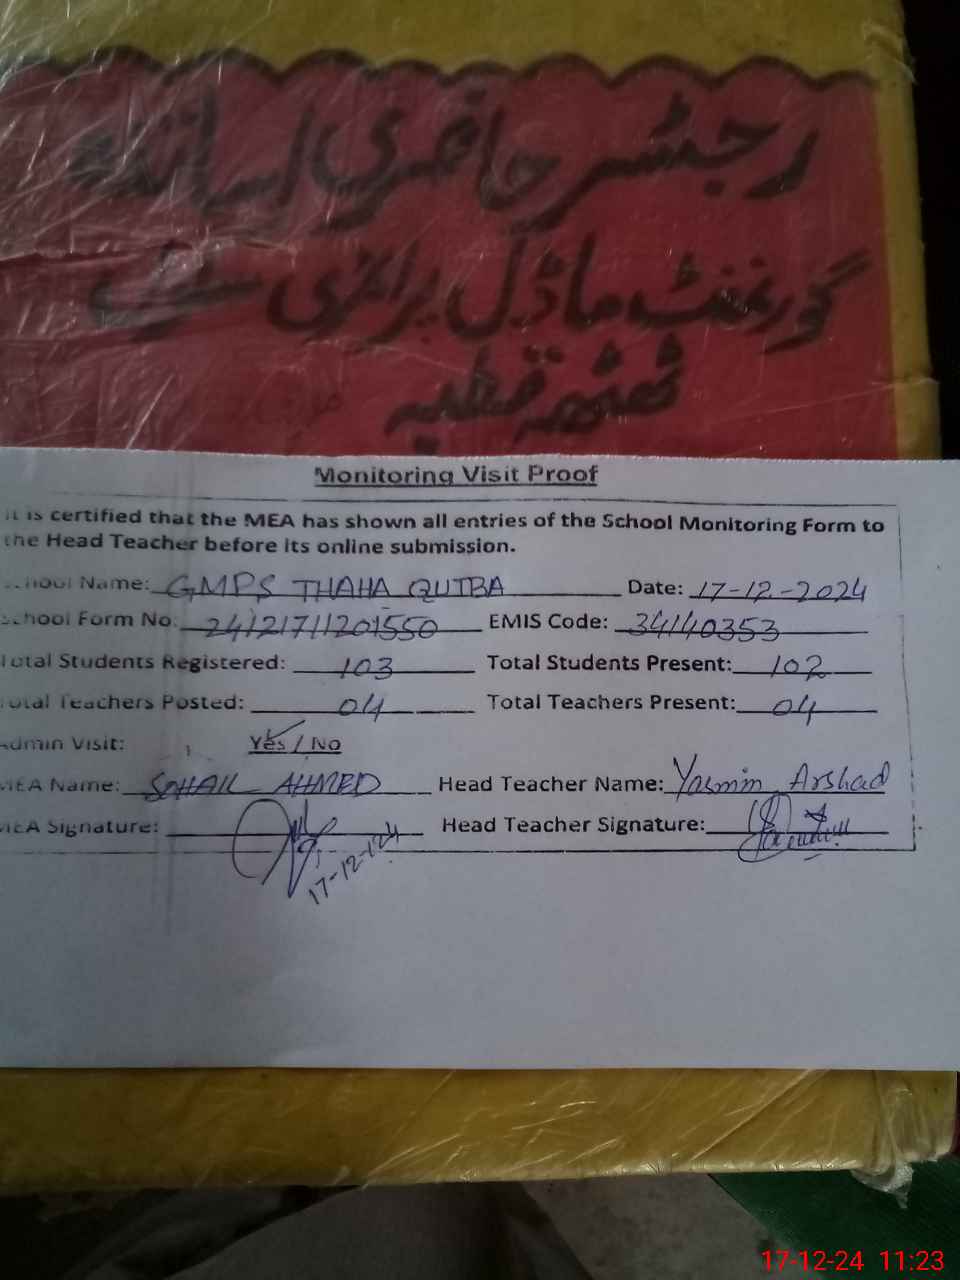 رجسٹر حاضری اساتذہ
گورنمنٹ ماڈل پرائمری سکول
ٹھٹھہ قطبہ
Monitoring Visit Proof
It is certified that the MEA has shown all entries of the School Monitoring Form to
the Head Teacher before its online submission.
School Name: GMPS THAHA QUTBA Date: 17-12-2024
School Form No. 24121711201550 EMIS Code: 34140353
Total Students Registered: 103 Total Students Present: 102
Total Teachers Posted: 04 Total Teachers Present: 04
Admin Visit: Yes / No
MEA Name: SOHAIL AHMED Head Teacher Name: Yasmin Arshad
MEA Signature: Head Teacher Signature:
17-12-24
17-12-24 11:23